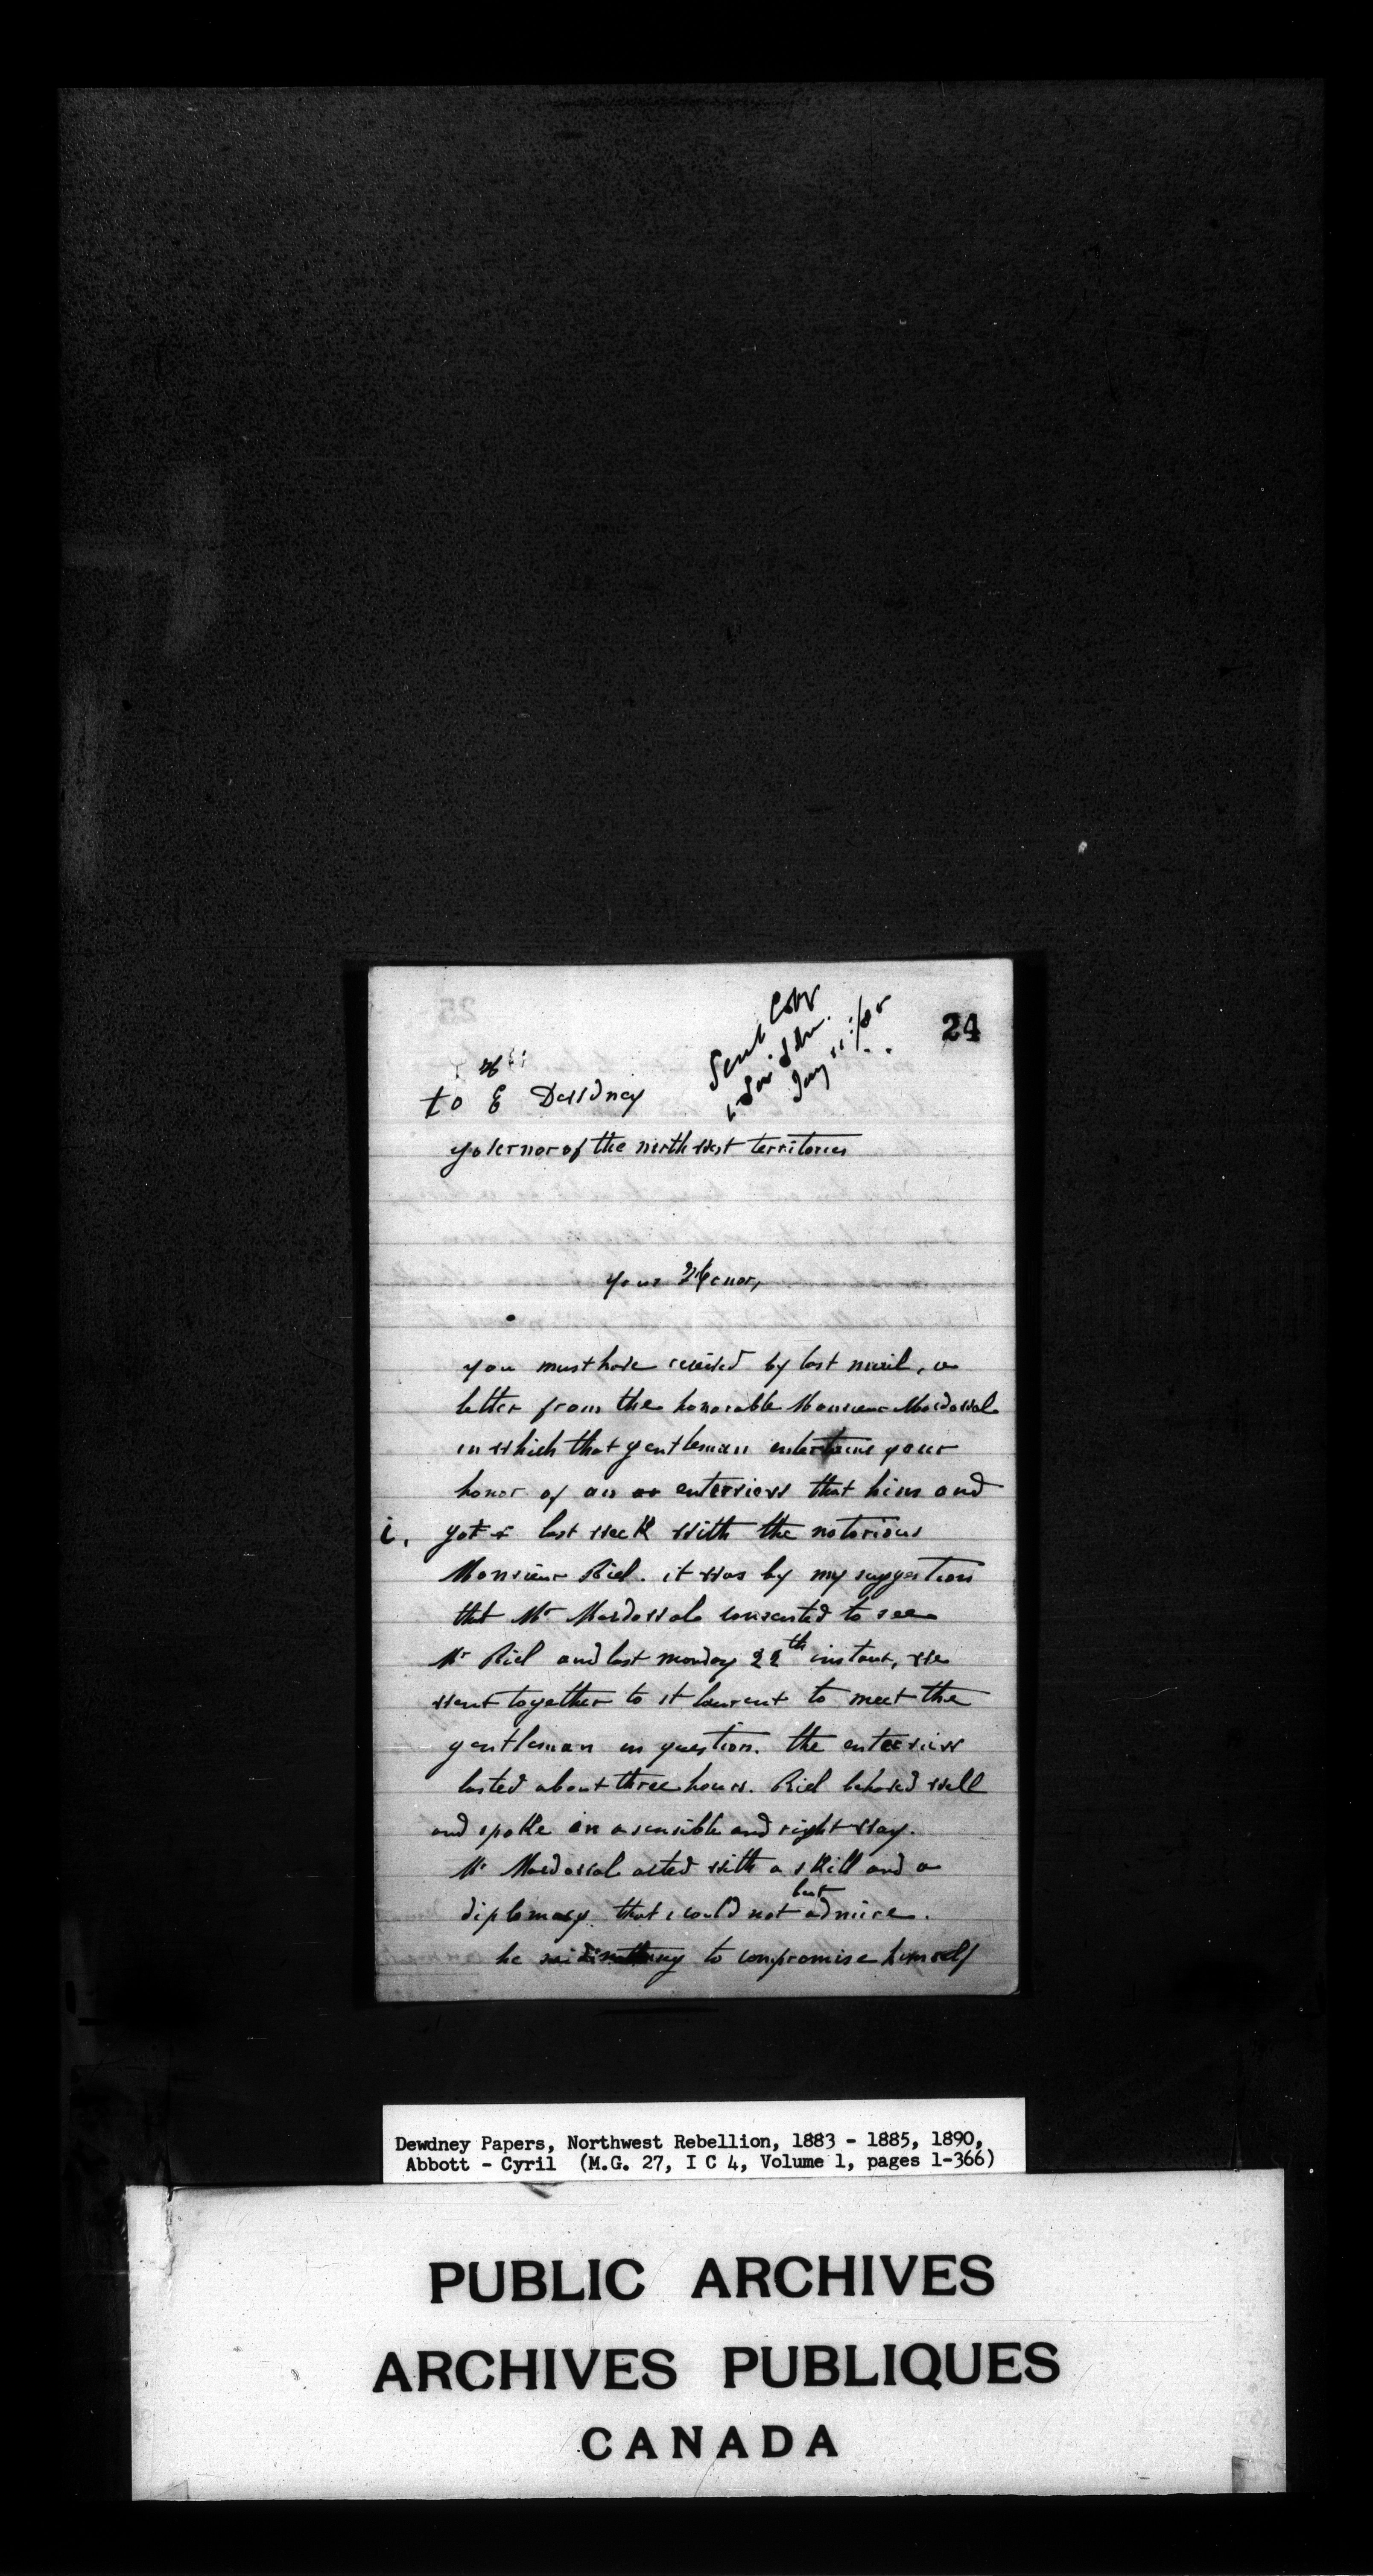 24
Sent Copy
Jany
to E Dewdney
governor of the north west territories
your Honor,
you must have received by last mail, a
letter from the honorable Monsieur Macdowal
in which that gentleman entertains your
honor of an enterview that him and
i. got last week with the notorious
Monsieur Riel. it was by my suggestion
that Mr Macdowal consented to see
Mr Riel and last monday 22th instant, we
went together to st laurent to meet the
gentleman in question. the enterview
lasted about three hours. Riel behaved well
and spoke in a sensible and right way.
Mr Macdowal acted with a skill and a
diplomacy that i could not but admire.
he said nothing to compromise himself
Dewdney Papers, Northwest Rebellion, 1883 - 1885, 1890,
Abbott - Cyril (M.G. 27, I C 4, Volume 1, pages 1-366)
PUBLIC ARCHIVES
ARCHIVES PUBLIQUES
CANADA